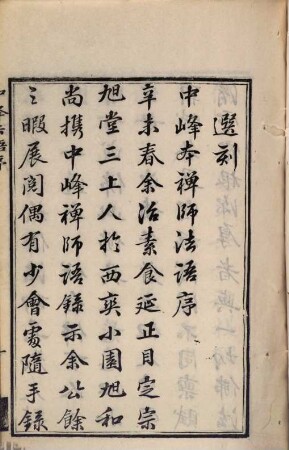 選刻
中峰本禪師法語序
辛未春余治素食延正目定宗
旭堂三上人於西爽小園旭和
尚携中峰禪師語錄示余公餘
之暇展閱偶有少會處隨手錄